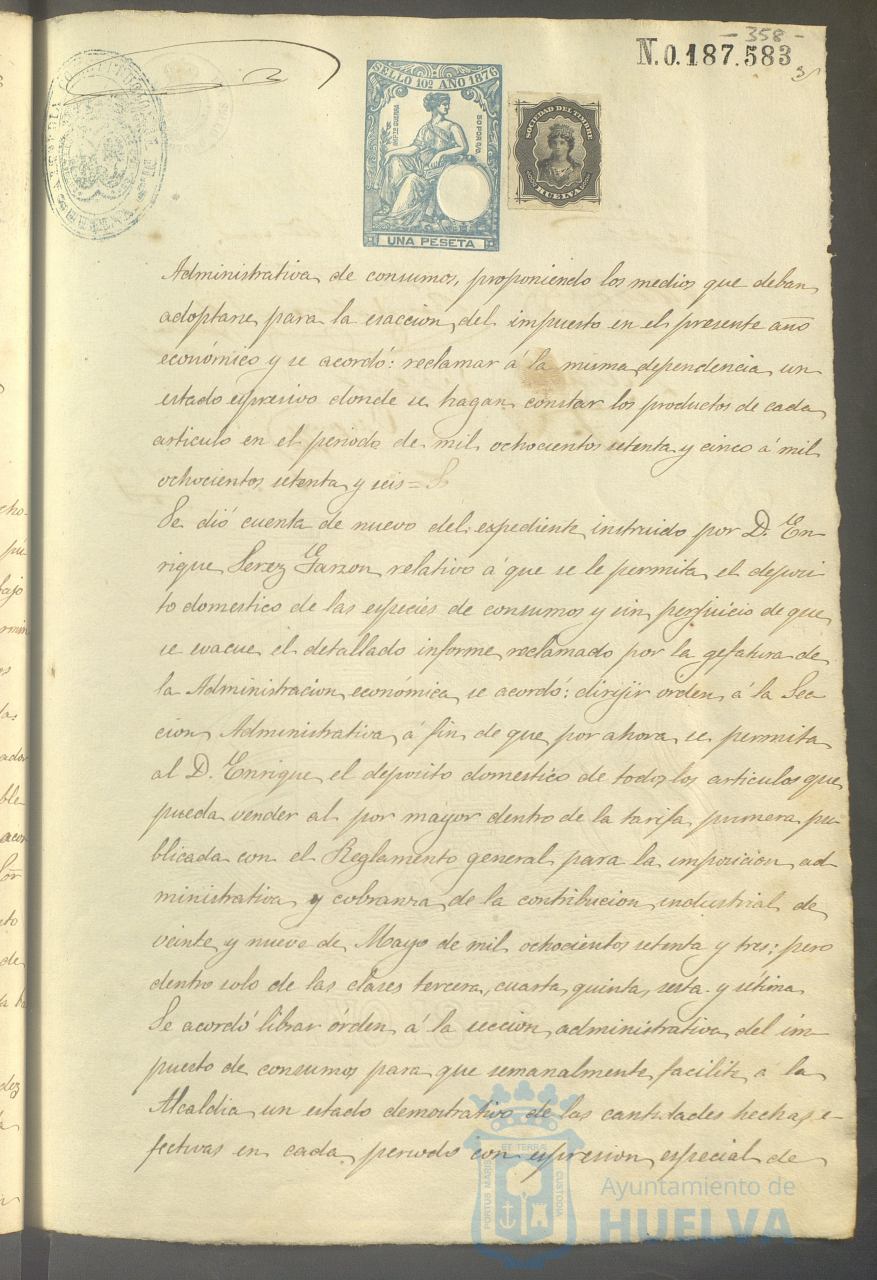 - 358 -
N.0.187.583
SELLO 10º AÑO 1876
IMPTO GUERRA
50 POR 0/0
UNA PESETA
SOCIEDAD DEL TIMBRE
HUELVA
Administrativa de consumos, proponiendo los medios que deban
adoptarse para la esaccion del impuesto en el presente año
económico y se acordó: reclamar á la misma dependencia un
estado espresivo donde se hagan constar los productos de cada
articulo en el periodo de mil ochocientos setenta y cinco á mil
ochocientos setenta y seis =
Se dió cuenta de nuevo del espediente instruido por D. En
rique Perez Garzon relativo á que se le permita el deposi
to domestico de las especies de consumos y sin perjuicio de que
se evacue el detallado informe reclamado por la gefatura de
la Administracion económica se acordó: dirijir orden á la Sec
cion Administrativa á fin de que por ahora se permita
al D. Enrique el deposito domestico de todos los articulos que
pueda vender al por mayor dentro de la tarifa primera pu
blicada con el Reglamento general para la imposicion ad
ministrativa y cobranza de la contribucion industrial de
veinte y nueve de Mayo de mil ochocientos setenta y tres: pero
dentro solo de las clases tercera, cuarta, quinta, sesta y sétima
Se acordó librar órden á la seccion administrativa del im
puesto de consumos para que semanalmente facilite á la
Alcaldia un estado demostrativo de las cantidades hechas e-
fectivas en cada periodo con espresion especial de
PORTUS MARIS ET TERRAE CUSTODIA
Ayuntamiento de
HUELVA